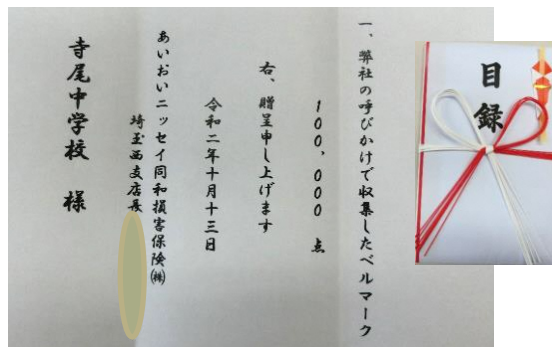 目録
一、弊社の呼びかけで収集したベルマーク
100,000 点
右、贈呈申し上げます
令和二年十月十三日
あいおいニッセイ同和損害保険㈱
埼玉西支店長
寺尾中学校 様